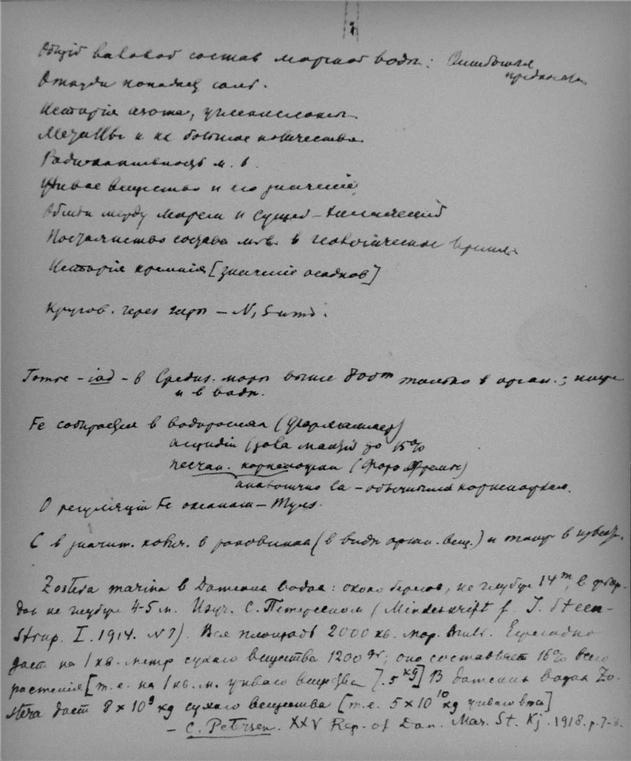 Общий валовой состав морской воды:
Откуда попадает соль.
История азота, углекислоты.
Металлы и их большое количество
Радиоактивность м. в.
Живое вещество и его значение
Обмен между морем и сушей -
Постоянство состава м.в. в геологическое время
История кремния [значение осадков]
Кругов. через газы – N, S итд.
Тоже – iod – в Средиз. море выше 800 m только в орган.; ниже
и в воде.
Fe собирается в водорослях
асцидии до 15%
песчан. корненожки
аналогично Ca – обычными корненожк.
О регуляции Fe океаном –
С в значит. колич. в раковинах (в виде орган. вещ.) и тонут в
Zostera marina в Датских водах: около берегов, не глубже 14 m, в фиор-
дах не глубже 4-5 м. Изуч. С. Петерсеном (Mindeskrift f. J. Steen-
strup. I. 1914. N 7). Вся площадь 2000 кв. мор. миль. Ежегодно
дает на 1 кв. метр сухого вещества 1200 gr; оно составляет 16% всего
растения [т.е. на 1 кв. м. живого вещества 7.5 kg] В датских водах Zo-
stera дает 8 x 10⁹ kg сухого вещества [т.е. 5 x 10¹⁰ kg живого в-ва]
– C. Petersen. XXV Rep. of Dan. St. Kj. 1918. p. 7-8.